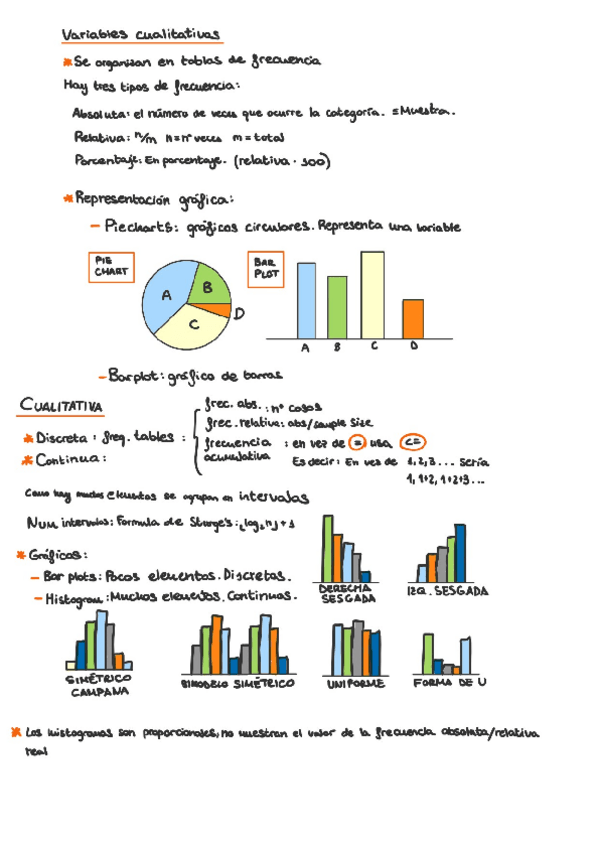 Variables cualitativas
* Se organizan en tablas de frecuencia
Hay tres tipos de frecuencia:
Absoluta: el número de veces que ocurre la categoría. = Muestra.
Relativa: n/m n=nº veces m=total
Porcentaje: En porcentaje. (relativa · 100)
* Representación gráfica:
– Piecharts: gráficos circulares. Representa una variable
PIE CHART
A
B
C
D
BAR PLOT
A B C D
– Barplot: gráfico de barras
CUALITATIVA
* Discreta: freq. tables:
* Continua:
frec. abs.: nº casos
frec. relativa: abs/sample size
frecuencia acumulativa: en vez de = usa <=
Es decir: En vez de 1, 2, 3... sería
1, 1+2, 1+2+3...
Como hay muchos elementos se agrupan en intervalos
Num intervalos: Formula de Sturge's: ⌊log₂n⌋+1
* Gráficas:
– Bar plots: Pocos elementos. Discretas.
– Histogram: Muchos elementos. Continuas.
DERECHA SESGADA
IZQ. SESGADA
SIMÉTRICO CAMPANA
BIMODELO SIMÉTRICO
UNIFORME
FORMA DE U
* Los histogramas son proporcionales, no muestran el valor de la frecuencia absoluta/relativa
real